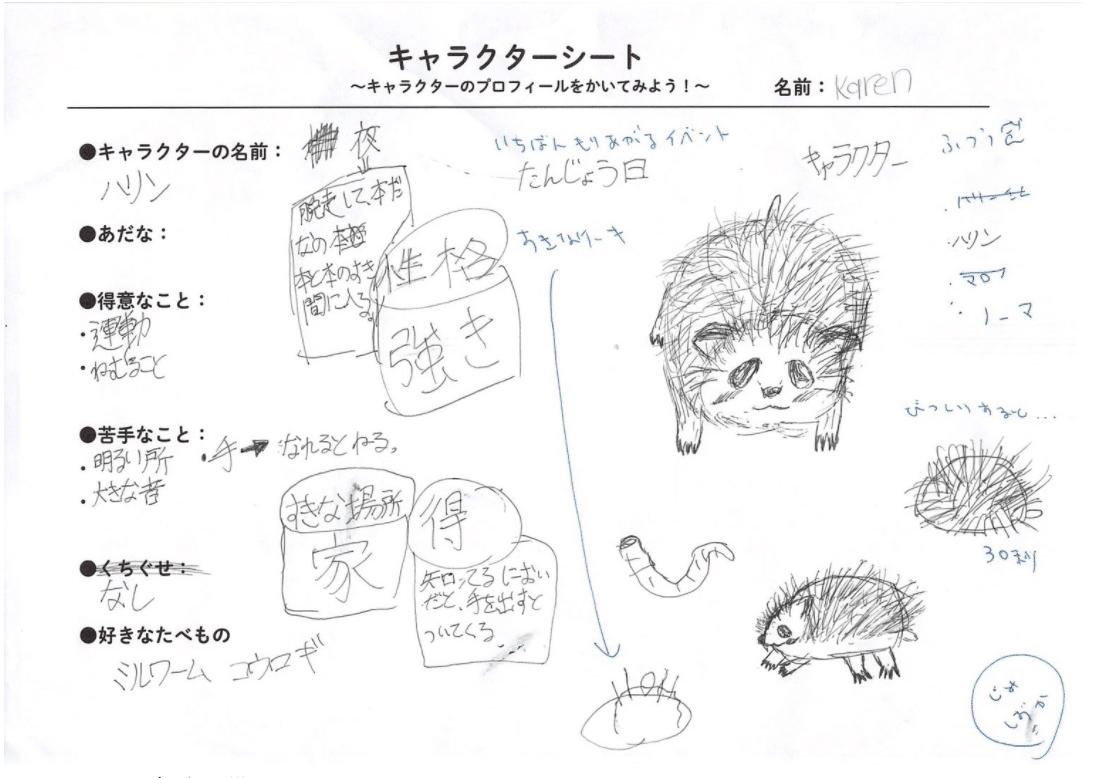 キャラクターシート
～キャラクターのプロフィールをかいてみよう！～
名前：Karen
●キャラクターの名前：
ハリン
●あだな：
●得意なこと：
・運動
・ねむること
●苦手なこと：
・明るい所
・大きな音
・手→なれるとねる。
●くちぐせ：
なし
●好きなたべもの
ミルワーム コウロギ
夜
脱走して、本だ
なの本
本と本のすき
間に入る。
性格
強き
すきな場所
家
得
知ってるにおい
だと、手を出すと
ついてくる
いちばんもりあがるイベント
たんじょう日
キャラクター
・ハリン
・マロン
・ノーマ
びっくりすると…
30秒